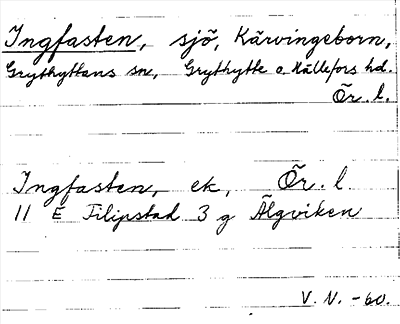 Ingfasten, sjö, Kärvingeborn,
Grythyttans sn, Grythytte o. Hällefors hd.
Ör. l.
Ingfasten, ek, Ör. l
11 E Filipstad 3 g Älgviken
V. N. -60.